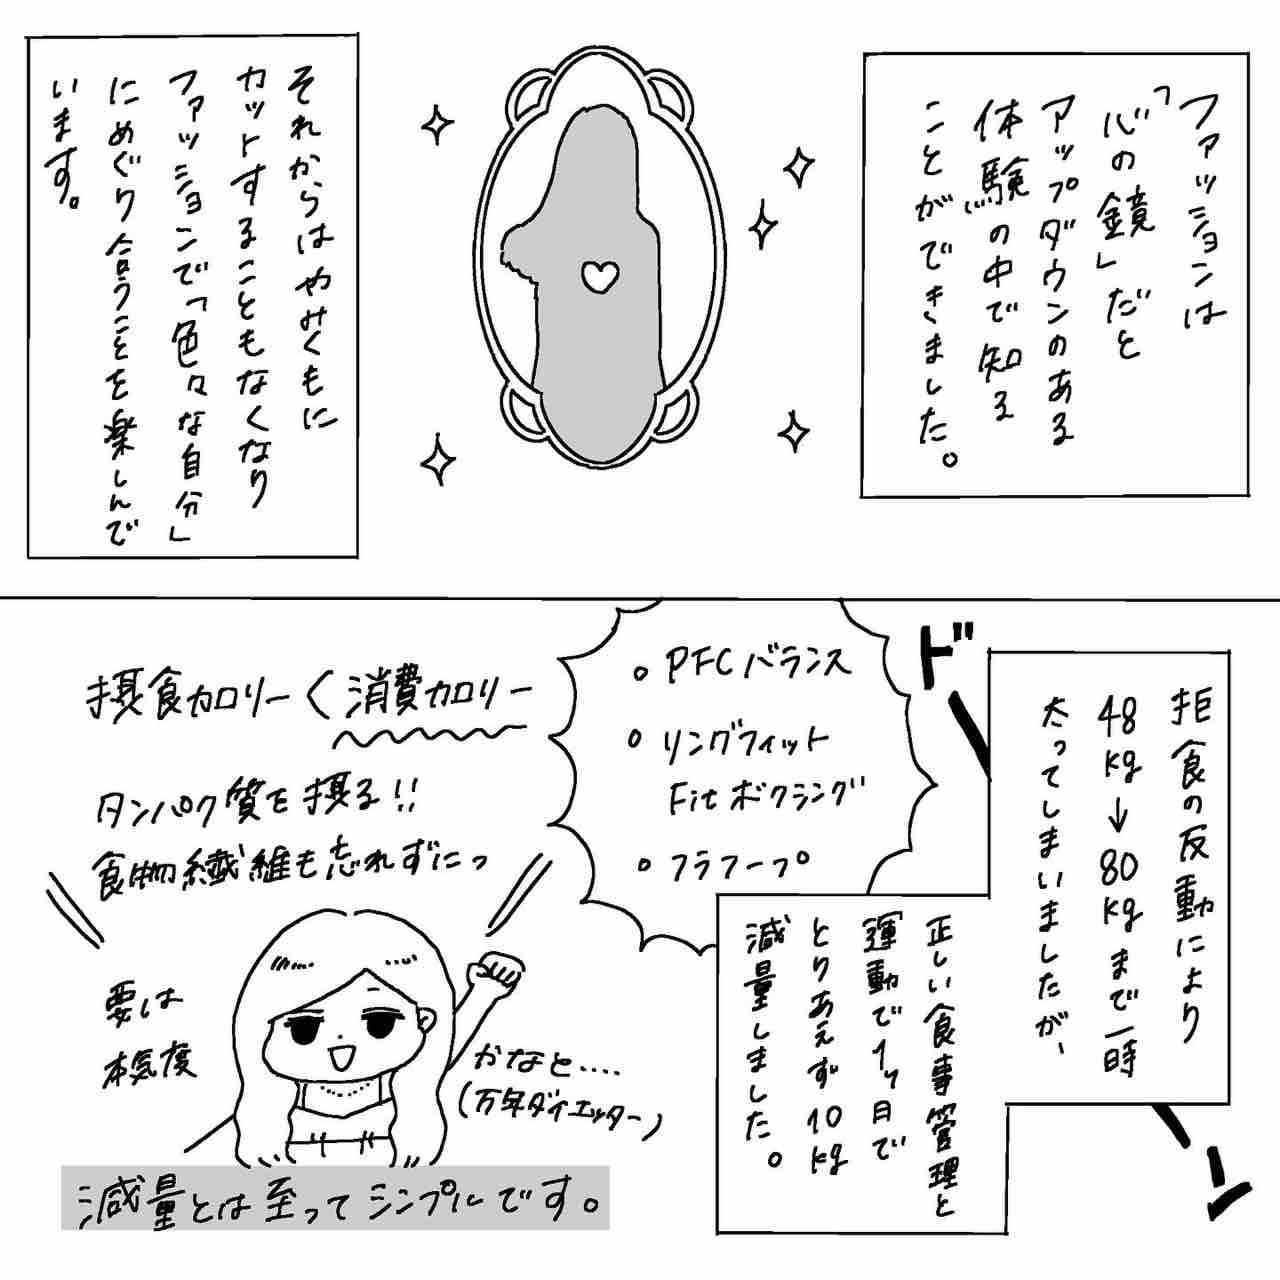 ファッションは
「心の鏡」だと
アップダウンのある
体験の中で知る
ことができました。
それからはやみくもに
カットすることもなくなり
ファッションで「色々な自分」
にめぐり合うことを楽しんで
います。
ドーン
拒食の反動により
48kg→80kgまで一時
太ってしまいましたが、
正しい食事管理と
運動で1ヶ月で
とりあえず10kg
減量しました。
。PFCバランス
。リングフィット
Fitボクシング
。フラフープ
摂食カロリー<消費カロリー
タンパク質を摂る!!
食物繊維も忘れずにっ
要は
本気度
かなと‥‥
(万年ダイエッター)
減量とは至ってシンプルです。